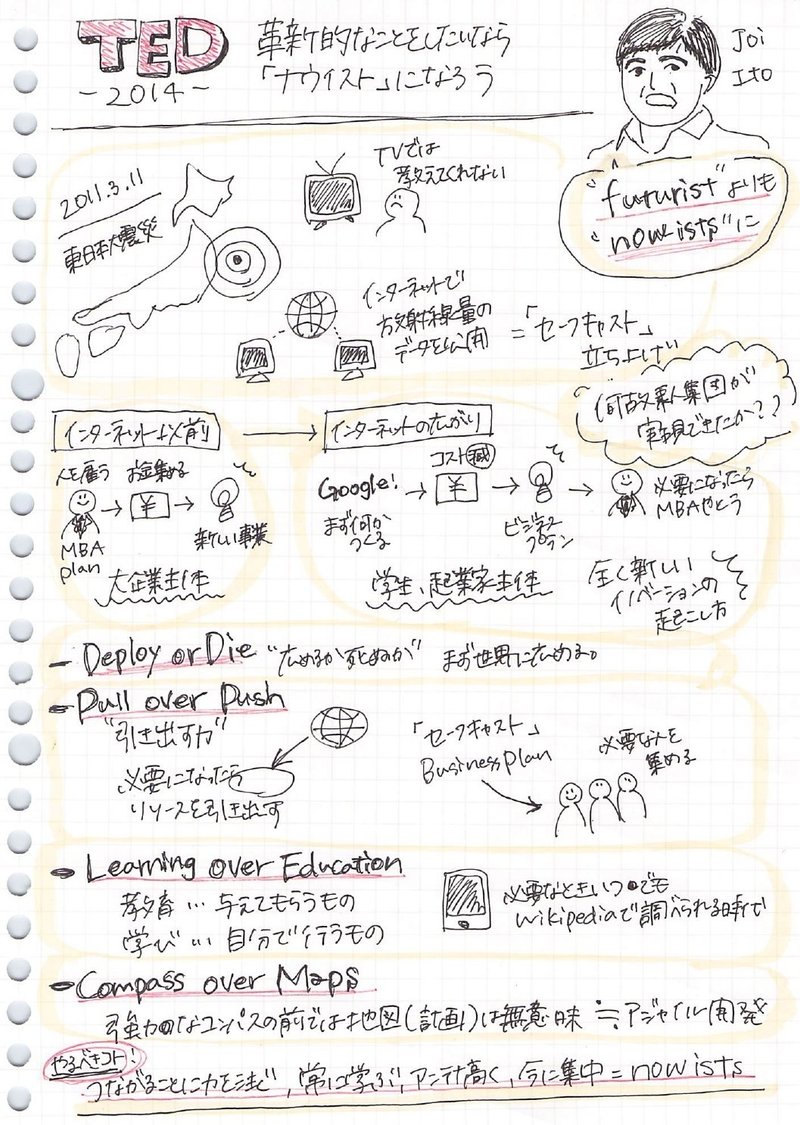 TED
-2014-
革新的なことをしたいなら
「ナウイスト」になろう
Joi
Ito
"fururist"よりも
"now-ists"に
2011.3.11
東日本大震災
TVでは
教えてくれない
インターネットで
放射線量の
データを公開
=「セーフキャスト」
立ち上げ
何故素人集団が
実現できたか??
インターネット以前
インターネットの広がり
人を雇う お金集める
¥
MBA
plan
新しい事業
大企業主体
Google!
まず何か
つくる
コスト減
¥
ビジネス
プラン
必要になったら
MBAやとう
学生、起業家主体
全く新しい
イノベーションの
起こし方
- Deploy or Die "広めるか死ぬか" まず世界に広める。
- Pull over Push
"引き出す力"
必要になったら
リソースを引き出す
「セーフキャスト」
Business plan
必要な人を
集める
- Learning over Education
教育 … 与えてもらうもの
学び … 自分で行うもの
必要なときいつでも
wikipediaで調べられる時代
- Compass over Maps
強力なコンパスの前では地図(計画)は無意味 ≒ アジャイル開発
やるべきコト!
つながることに力を注ぐ, 常に学ぶ, アンテナ高く, 今に集中 = now ists